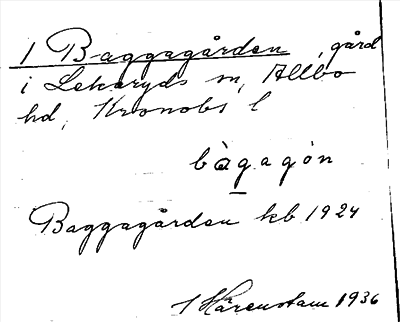 1 Baggagården, gård
i Lekaryds sn, Allbo
hd, Kronobs l
bàgagón
Baggagården kb 1924
1 Hårenstam 1936